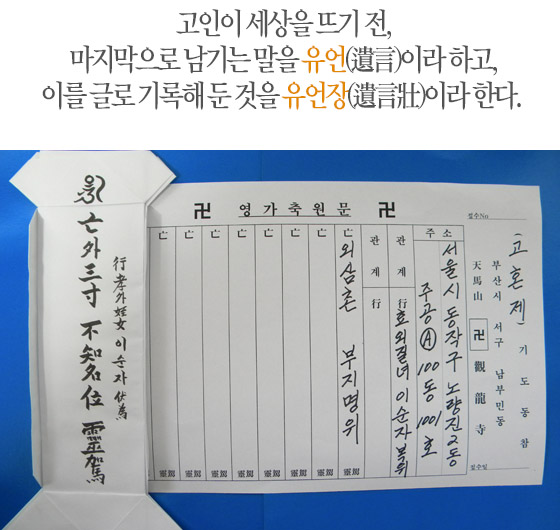 고인이 세상을 뜨기 전,
마지막으로 남기는 말을 유언(遺言)이라 하고,
이를 글로 기록해 둔 것을 유언장(遺言壯)이라 한다.
卍 영가축원문 卍
접수No
접수일
(고혼제) 기도동참
부산시 서구 남부민동
天馬山 卍 觀龍寺
주소
서울시 동작구 노량진2동
주공Ⓐ 100동 1001호
관계
行
관계
行효외질녀 이순자 복위
亡 외삼촌 부지명위 靈駕
亡 靈駕
亡 靈駕
亡 靈駕
亡 靈駕
亡 靈駕
亡 靈駕
亡 靈駕
行孝外姪女 이순자 伏爲
亡外三寸 不知名位 靈駕